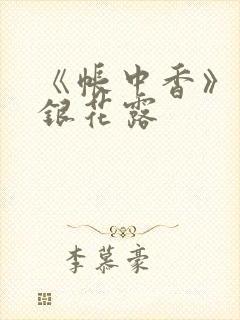 《帐中香》
银花露
李慕豪